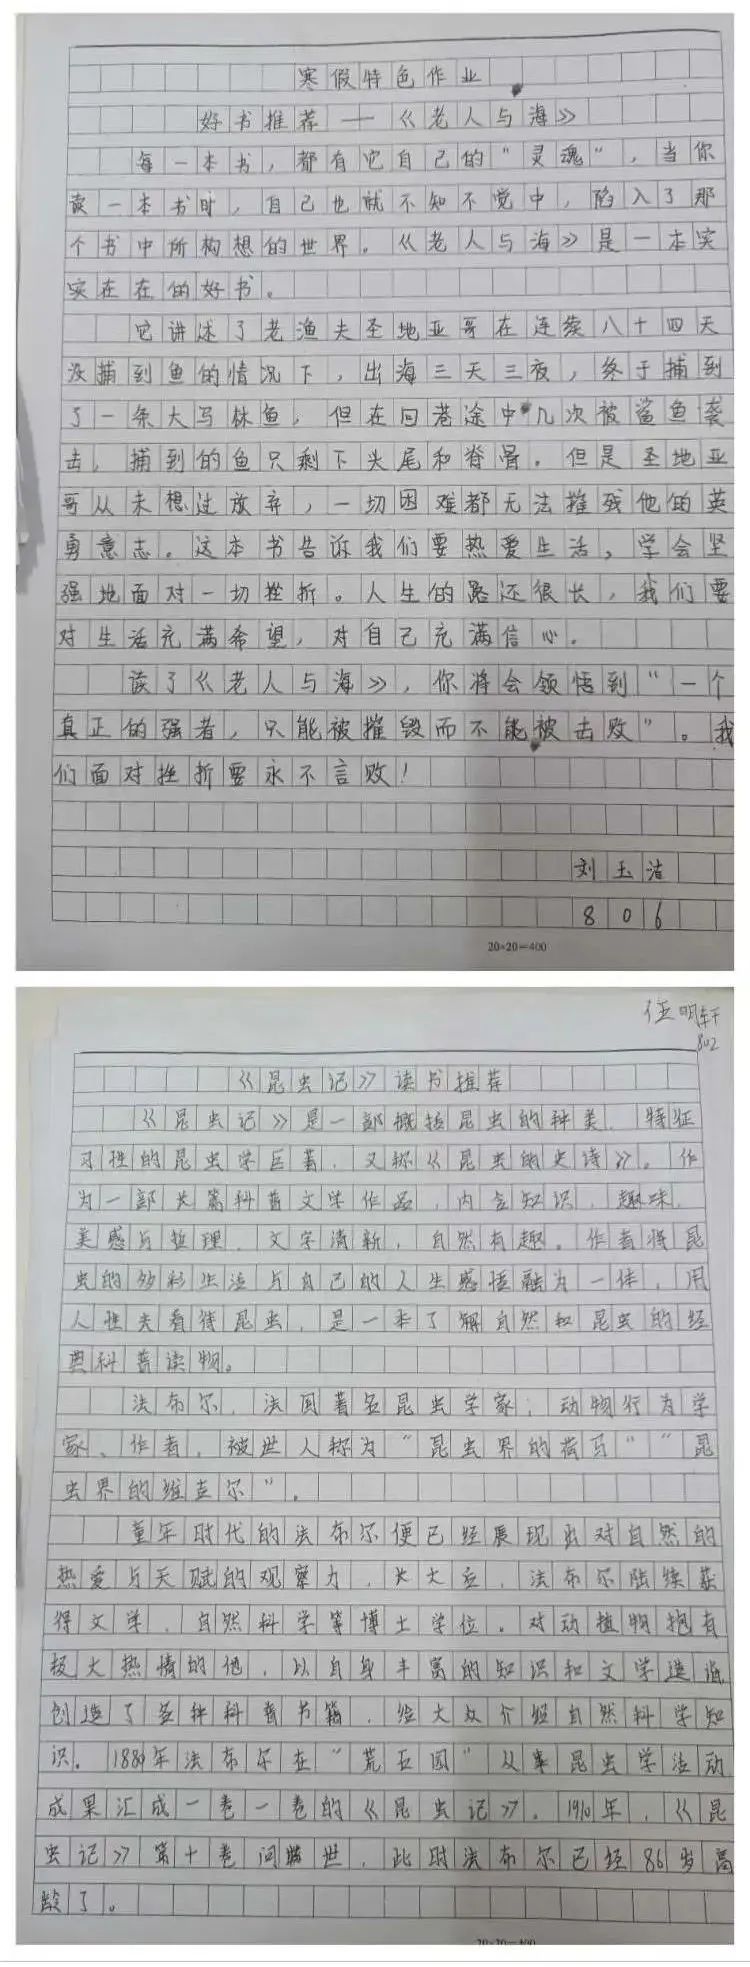 寒假特色作业
好书推荐——《老人与海》
每一本书，都有它自己的“灵魂”，当你
读一本书时，自己也就不知不觉中，陷入了那
个书中所构想的世界。《老人与海》是一本实
实在在的好书。
它讲述了老渔夫圣地亚哥在连续八十四天
没捕到鱼的情况下，出海三天三夜，终于捕到
了一条大马林鱼，但在回港途中几次被鲨鱼袭
击，捕到的鱼只剩下头尾和脊骨。但是圣地亚
哥从未想过放弃，一切困难都无法摧残他的英
勇意志。这本书告诉我们要热爱生活，学会坚
强地面对一切挫折。人生的路还很长，我们要
对生活充满希望，对自己充满信心。
读了《老人与海》，你将会领悟到“一个
真正的强者，只能被摧毁而不能被击败”。我
们面对挫折要永不言败！
刘玉洁
806
20×20=400
任明轩
802
《昆虫记》读书推荐
《昆虫记》是一部概括昆虫的种类、特征
习性的昆虫学巨著，又称《昆虫的史诗》。作
为一部长篇科普文学作品，内含知识、趣味、
美感与哲理，文字清新，自然有趣。作者将昆
虫的妙彩生活与自己的人生感悟融为一体，用
人性去看待昆虫，是一本了解自然和昆虫的经
典科普读物。
法布尔，法国著名昆虫学家；动物行为学
家、作者，被世人称为“昆虫界的荷马”“昆
虫界的维吉尔”。
童年时代的法布尔便已经展现出对自然的
热爱与天赋的观察力，长大后，法布尔陆续获
得文学、自然科学等博士学位。对动植物抱有
极大热情的他，以自身丰富的知识和文学造诣
创造了各种科普书籍，给大众介绍自然科学知
识。1880年法布尔在“荒石园”从事昆虫学活动
成果汇成一卷一卷的《昆虫记》。1910年，《昆
虫记》第十卷问世，此时法布尔已经86岁高
龄了。
20×20=400